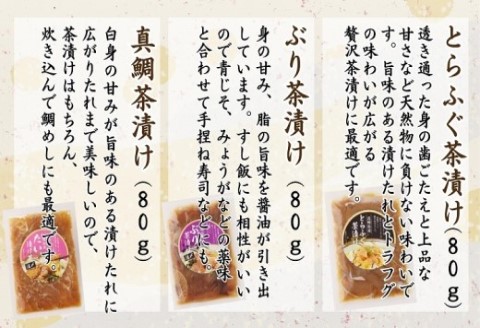 とらふぐ茶漬け(80g)
透き通った身の歯ごたえと上品な
甘さなど天然物に負けない味わいで
す。旨味のある漬けたれとトラフグ
の味わいが広がる
贅沢茶漬けに最適です。
ぶり茶漬け(80g)
身の甘み、脂の旨味を醤油が引き出
しています。すし飯にも相性がいい
ので青じそ、みょうがなどの薬味
と合わせて手捏ね寿司などにも。
真鯛茶漬け(80g)
白身の甘みが旨味のある漬けたれに
広がりたれまで美味しいので、
茶漬けはもちろん、
炊き込んで鯛めしにも最適です。